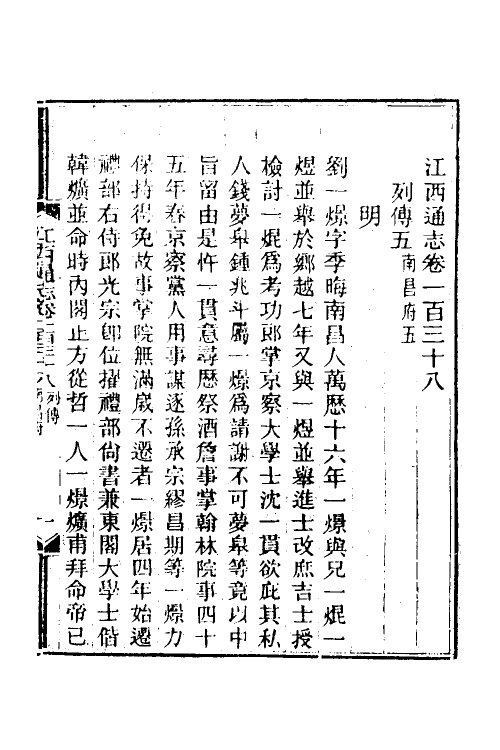 江西通志卷一百三十八
列傳五南昌府五
明
劉一燝字季晦南昌人萬歷十六年一燝與兄一焜一
煜並舉於鄉越七年又與一煜並舉進士改庶吉士授
檢討一焜爲考功郎掌京察大學士沈一貫欲庇其私
人錢夢皋鍾兆斗屬一燝爲請謝不可夢皋等竟以中
旨留由是忤一貫意尋歷祭酒詹事掌翰林院事四十
五年春京察黨人用事謀逐孫承宗繆昌期等一燝力
保持得免故事掌院無滿歲不遷者一燝居四年始遷
禮部右侍郎光宗卽位擢禮部尙書兼東閣大學士偕
韓爌並命時內閣止方從哲一人一燝爌甫拜命帝已
江西通志卷一百三十八列傳 南昌府 一